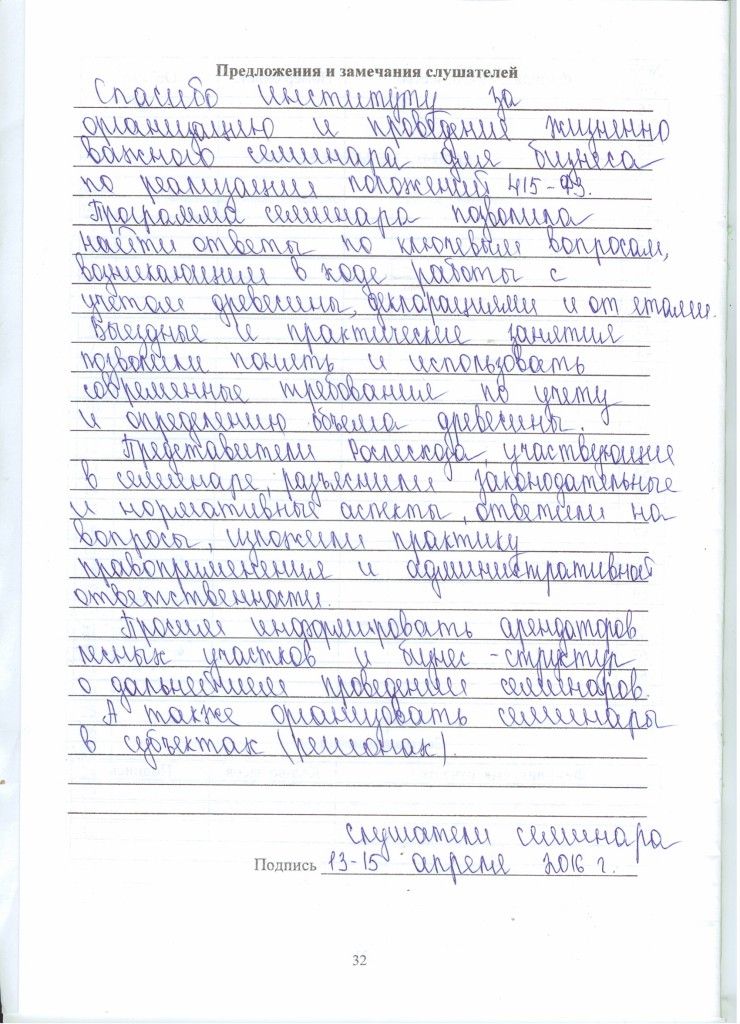 Предложения и замечания слушателей
Спасибо институту за
организацию и проведения жизненно
важного семинара для бизнеса
по реализации положений 415-ФЗ.
Программа семинара позволила
найти ответы по ключевым вопросам,
возникающими в ходе работы с
учетом древесины, декларациями и отчетами.
Выездные и практические занятия
позволили понять и использовать
современные требования по учету
и определению объема древесины.
Представители Рослесхоза, участвующие
в семинаре, разъяснили законодательные
и нормативные аспекты, ответили на
вопросы, изложили практику
правоприменения и административной
ответственности.
Просим информировать арендаторов
лесных участков и бизнес-структур
о дальнейшем проведении семинаров.
А также организовать семинары
в субъектах (регионах).
слушатели семинара
Подпись 13-15 апреля 2016 г.
32